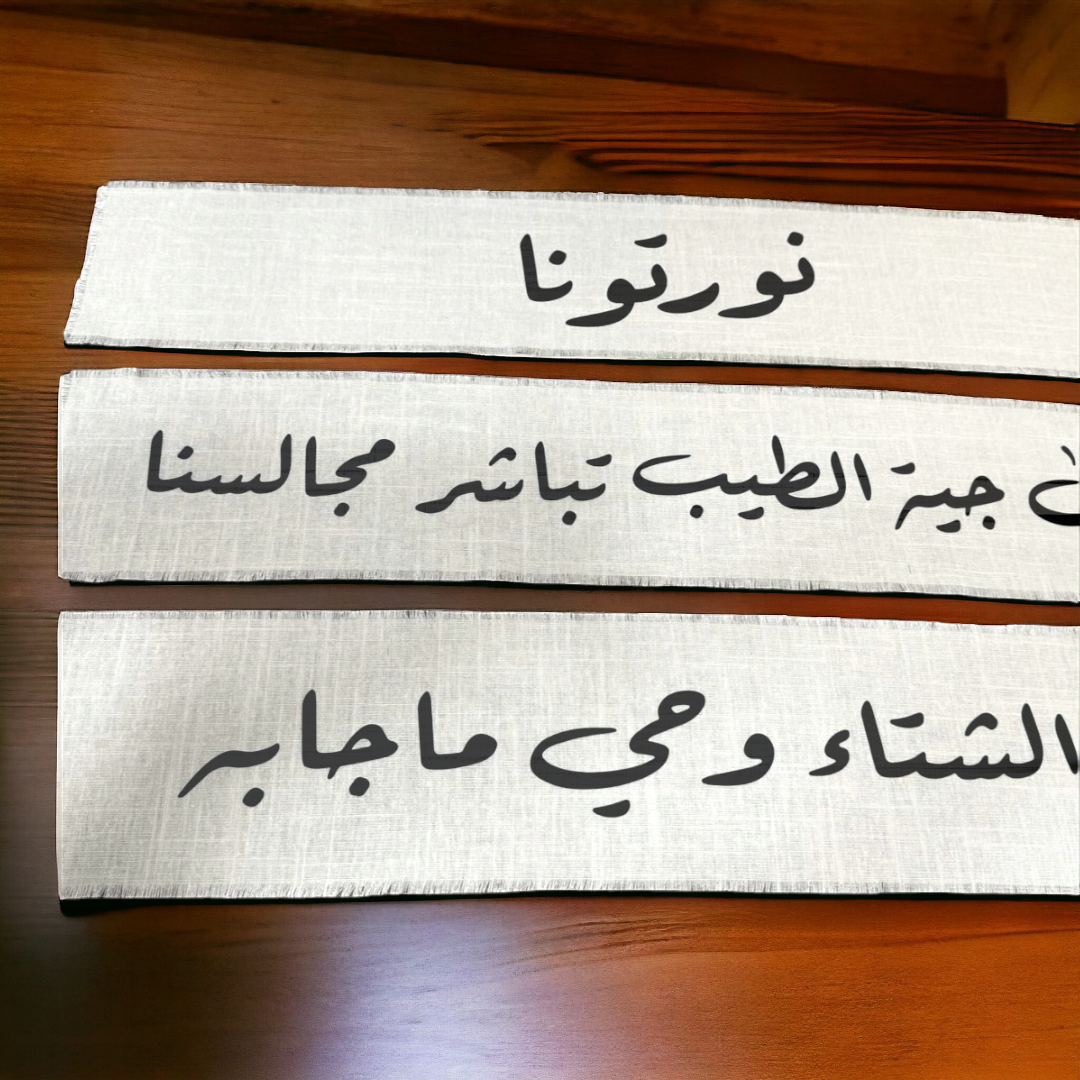 نورتونا
جية الطيب تباشر مجالسنا
الشتاء وحي ماجابه